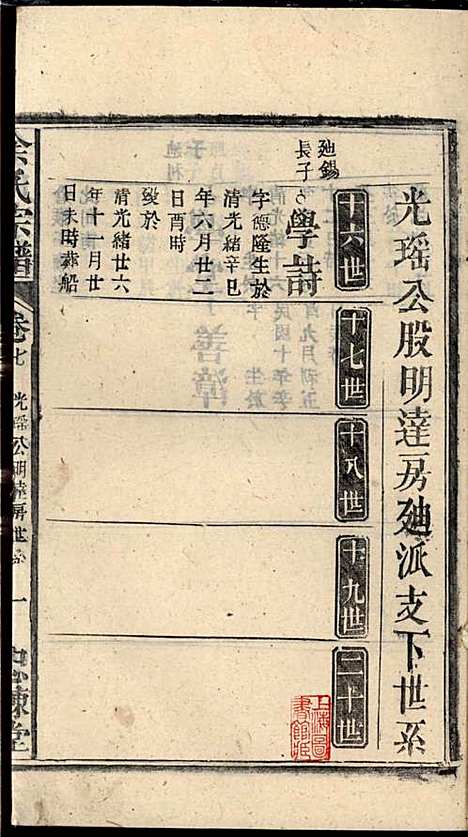 光瑤公股明達房廸派支下世系
十六世
十七世
十八世
十九世
二十世
廸錫
長子
學詩
字德隆生於
清光緒辛巳
年六月廿二
日酉時
歿於
清光緒廿六
年十一月廿
日未時葬船
氏宗譜
卷七
光瑤公明達房世系
一
上海圖
書館藏